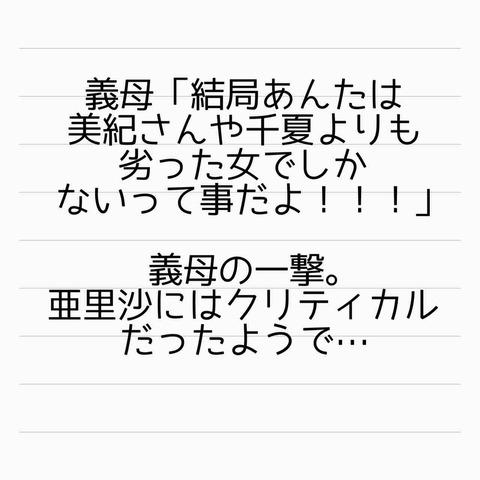 義母「結局あんたは
美紀さんや千夏よりも
劣った女でしか
ないって事だよ！！！」
義母の一撃。
亜里沙にはクリティカル
だったようで…